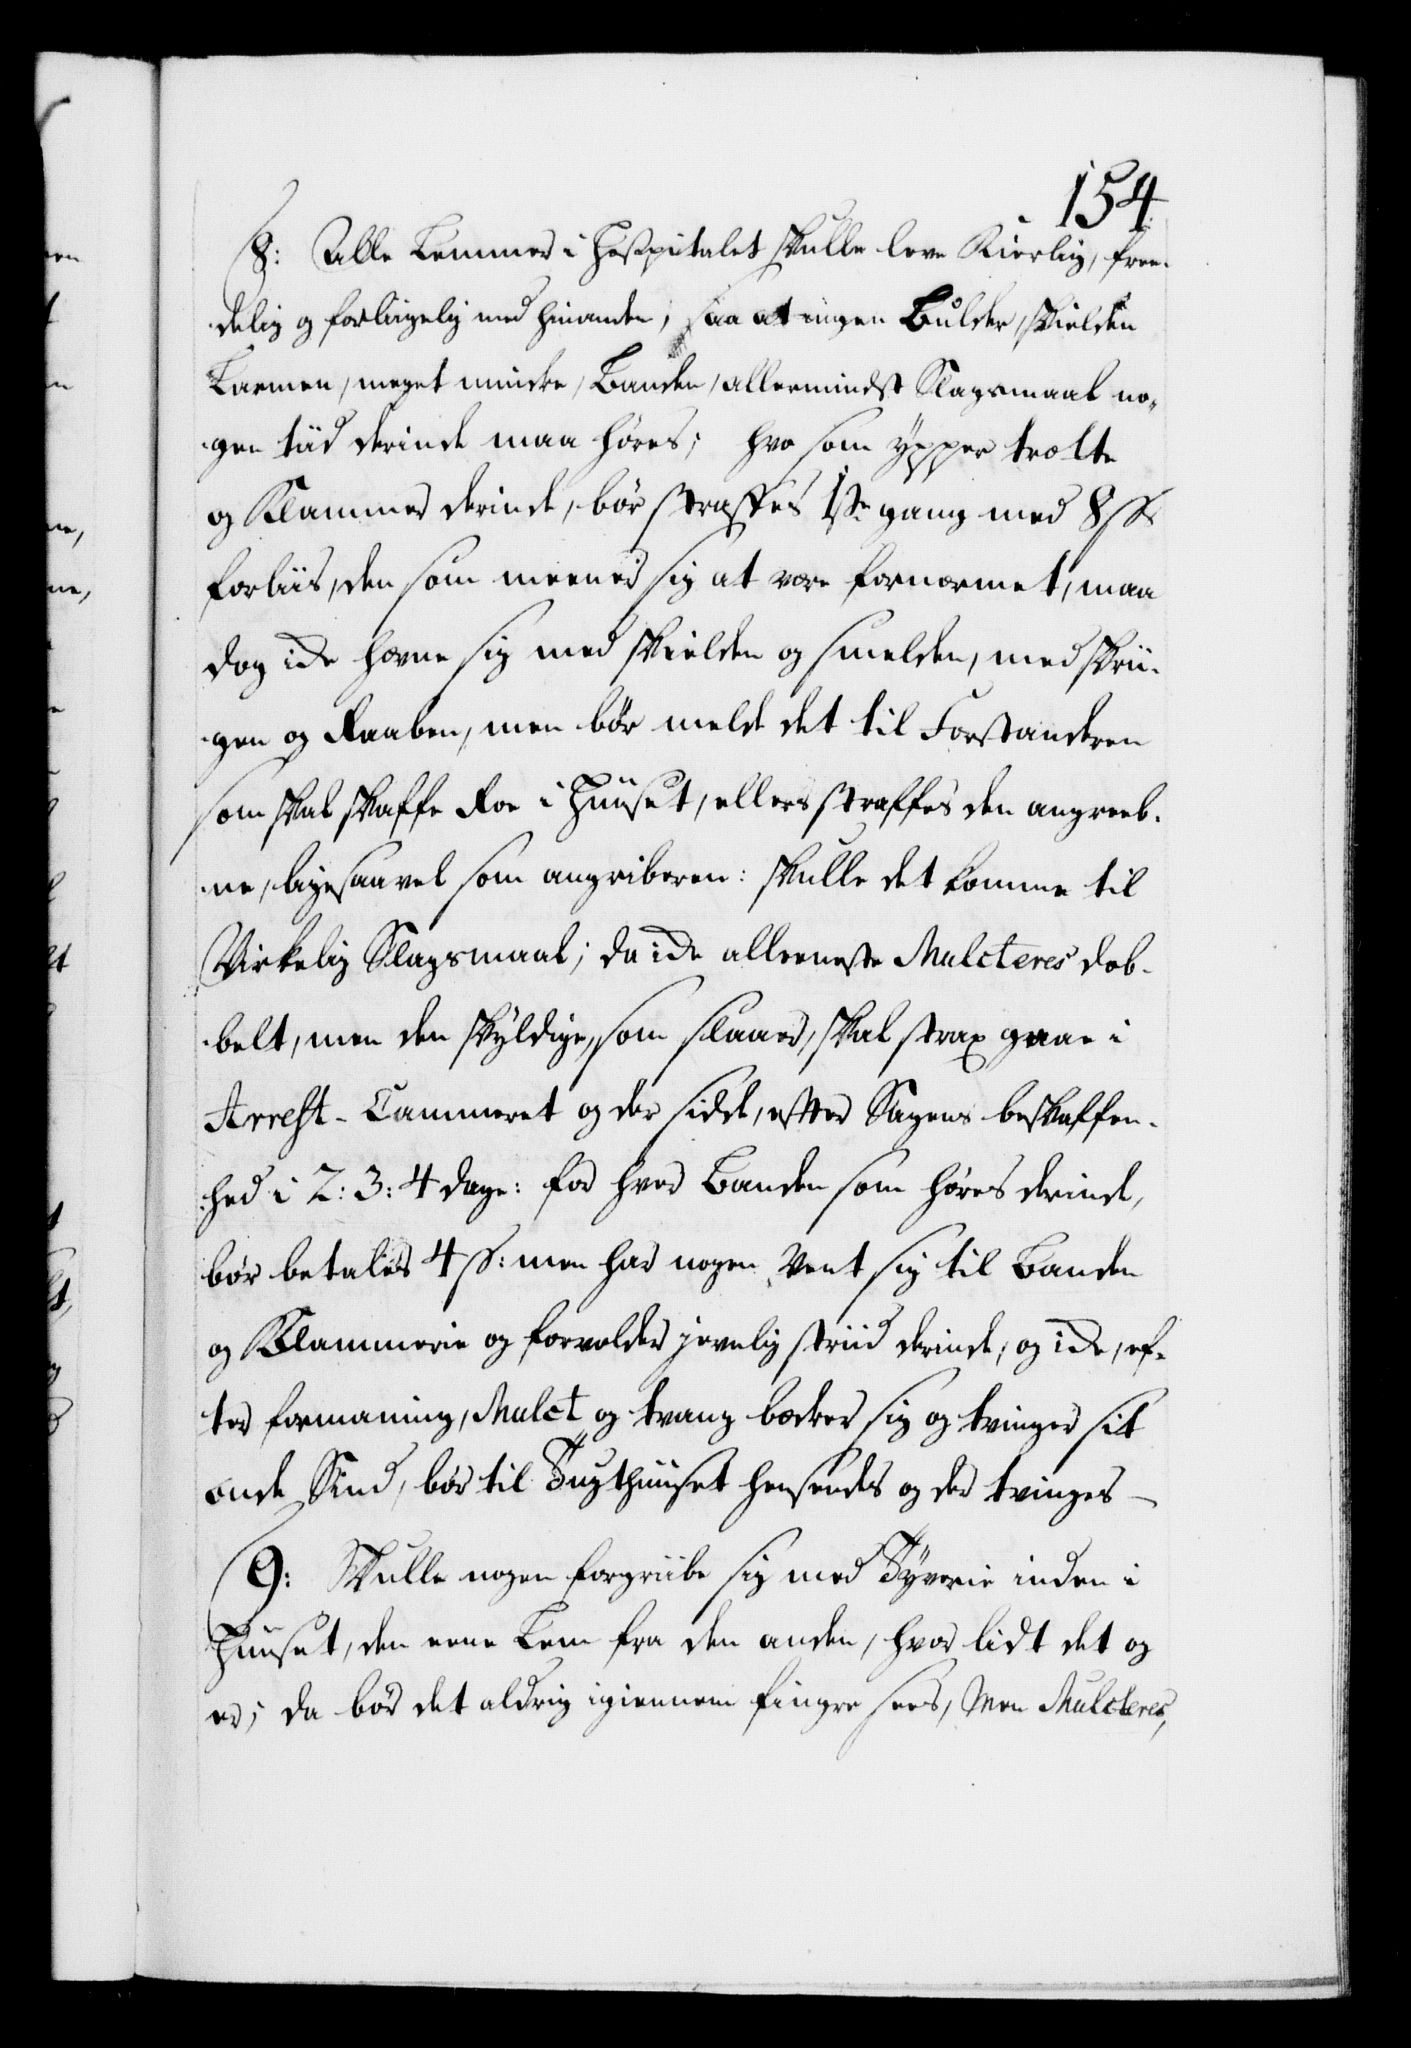 154
8: Alle Lemmer i Hospitalet skulle leve Kierlig, free-
delig og forligelig med hinanden, saa at ingen Bulder, skielden
Larmen, meget mindre, Banden, allermindst Slagsmaal no-
gen tiid derinde maa høres; hvo som ypper trætte
og Klammer derinde, bør straffes 1ste gang med 8 s
forliis, den som meener sig at være fornærmet, maa
dog icke hævne sig med skielden og smelden, med skrii-
gen og Raaben, men bør melde det til Forstanderen
som skal skaffe Roe i Huuset, ellers straffes den angreeb-
ne, ligesaavel som angriberen: skulle det komme til
Virkelig Slagsmaal; da icke alleeneste Mulcteres dob-
belt, men den skyldige, som slaaer, skal strax gaae i
Arrest-Cammeret og der sidde, efter Sagens beskaffen-
hed i 2: 3: 4 dage: for hver Banden som høres derinde,
bør betales 4 s: men har nogen Vent sig til Banden
og Klammerie og forvolder jevnlig striid derinde, og icke, ef-
ter formaning, Mulct og tvang bedrer sig og tvinger sit
onde Sind, bør til Tugthuuset hensendes og der tvinges —
9: Skulle nogen forgriibe sig med Tyverie inden i
Huuset, den eene Lem fra den anden, hvor lidt det og
er; da bør det aldrig igiennem fingre sees, Men Mulcteres,